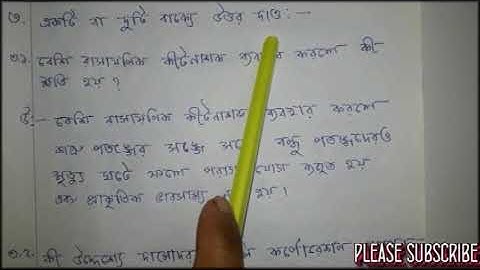 ৩. একটি বা দুটি বাক্যে উত্তর দাও:-
৩.১ বেশি রাসায়নিক কীটনাশক ব্যবহার করলে কী
ক্ষতি হয় ?
উঃ- বেশি রাসায়নিক কীটনাশক ব্যবহার করলে
শত্রু পতঙ্গের সঙ্গে বন্ধু পতঙ্গদেরও
মৃত্যু ঘটে ফলে ব্যাহত হয়
এবং প্রাকৃতিক ভারসাম্য হয় ।
৩.২. কী উদ্দেশ্যে দামোদর কর্পোরেশন
PLEASE SUBSCRIBE